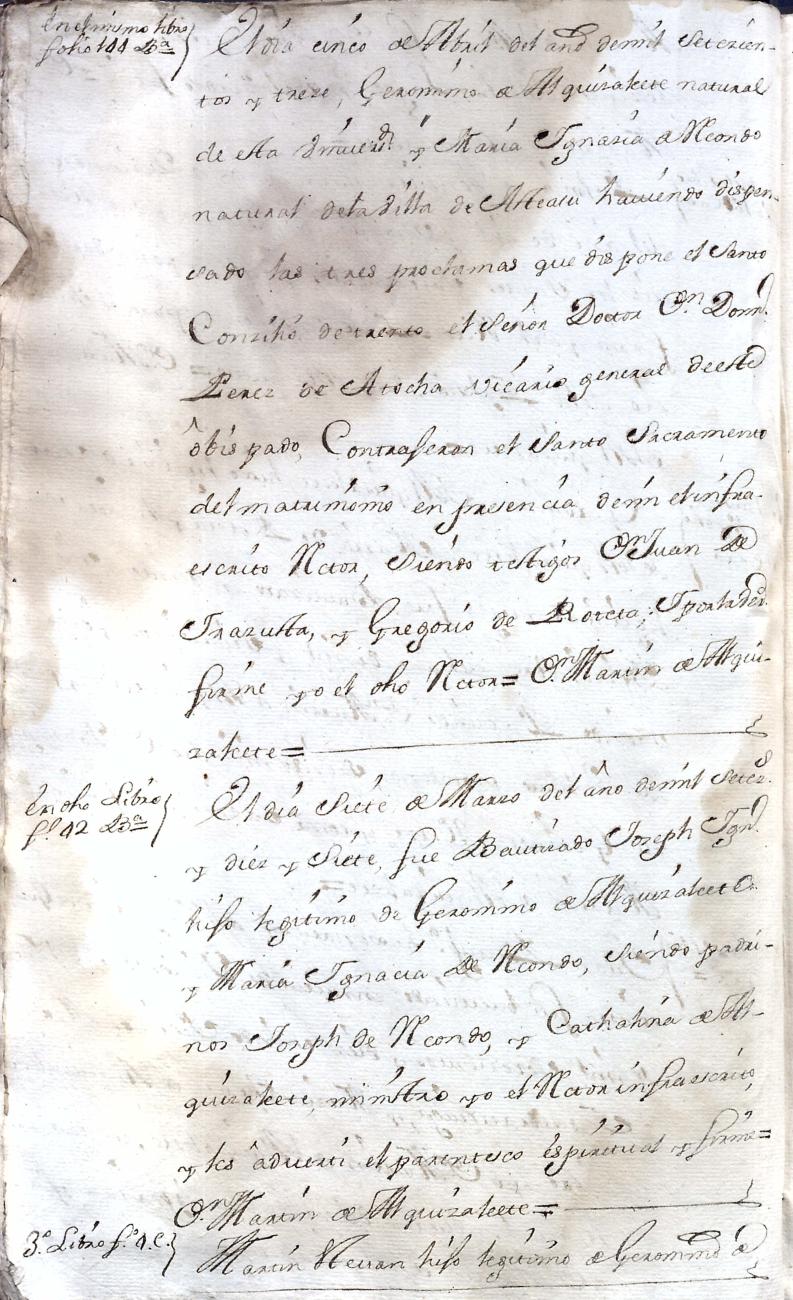 En el mismo libro
folio 144 Ba
El dia cinco de Abril del año de mil setecien-
tos y treze, Geronimo de Alquizalete natural
de esta Univerd. y Maria Ignacia de Recondo
natural de la Villa de Asteasu haviendo dispen-
sado las tres proclamas que dispone el Santo
Conzilio de trento el Señor Doctor Dn. Domn.
Perez de Atocha vicario general de este
obispado, Contrageron el Santo Sacramento
del matrimonio en presencia de mi el infra-
escrito Rector, siendo testigos Dn Juan de
Irazusta, y Gregorio de Roteta; Y por la verd.
firme yo el dho Rector= Dn. Martin de Alqui-
zalete=
En dho Libro
fo. 42 Ba
El dia siete de Marzo del año de mil setezs.
y diez y siete, fue Bautizado Joseph Ignº
hijo legitimo de Geronimo de Alquizalete
y Maria Ignacia de Recondo, siendo padri-
nos Joseph de Recondo, y Cathalina de Al-
quizalete, ministro yo el Rector infraescrito,
y les adverti el parentesco espiritual y firme=
Dn. Martin de Alquizalete=
3º Libro fº 4. C.
Martin hijo legitimo de Geronimo de